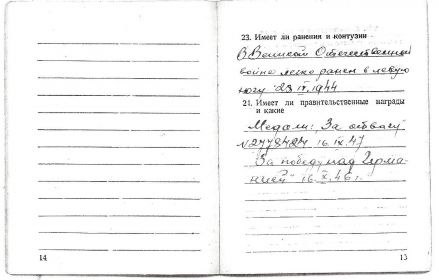 14
23. Имеет ли ранения и контузии
В Великой Отечественной
войне легко ранен в левую
ногу 23 IX. 1944
21. Имеет ли правительственные награды
и какие
Медали: „За отвагу"
N2778424 16. IX. 47
„За победу над Герма-
нией" 16. X. 46 г.
13